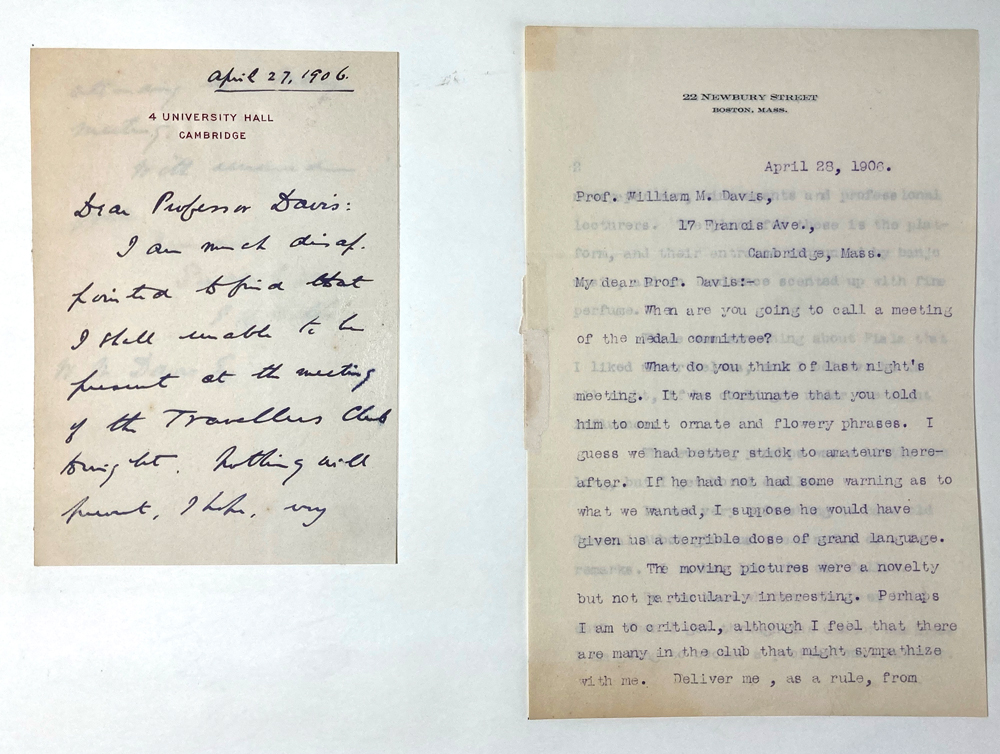 April 27, 1906.
4 UNIVERSITY HALL
CAMBRIDGE
Dear Professor Davis:
I am much disap-
pointed to find that
I shall unable to be
present at the meeting
of the Travellers Club
tonight. Nothing will
prevent, I hope, my
22 NEWBURY STREET
BOSTON, MASS.
April 28, 1906.
Prof. William M. Davis,
17 Francis Ave.,
Cambridge, Mass.
My dear Prof. Davis:-
When are you going to call a meeting
of the medal committee?
What do you think of last night's
meeting. It was fortunate that you told
him to omit ornate and flowery phrases. I
guess we had better stick to amateurs here-
after. If he had not had some warning as to
what we wanted, I suppose he would have
given us a terrible dose of grand language.
The moving pictures were a novelty
but not particularly interesting. Perhaps
I am to critical, although I feel that there
are many in the club that might sympathize
with me. Deliver me , as a rule, from